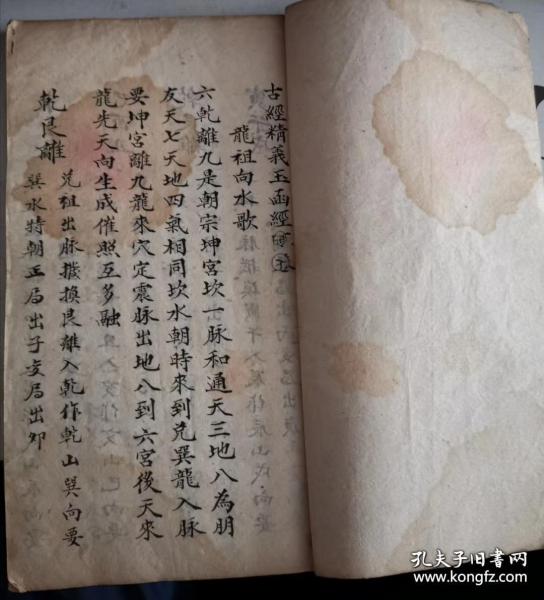 古經精義玉函經
龍祖向水歌
六乾離九是朝宗坤宮坎一脉和通天三地八為朋
友天七天地四氣相同坎水朝時來到兌巽龍入脉
要坤宮離九龍來穴定震脉出地八到六宮後天來
龍先天向生成催照互多融
乾艮離 兌祖出脉撥換艮離入乾作乾山巽向要
巽水特朝正局出子変局出卯
孔夫子旧书网
www.kongfz.com